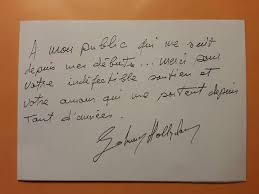 A mon public qui me suit
depuis mes débuts... merci pour
votre indéfectible soutien et
votre amour qui me portent depuis
tant d'années.
Johnny Hallyday